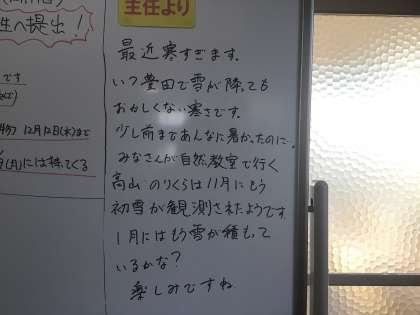 主任より
最近寒すぎます。
いつ豊田で雪が降っても
おかしくない寒さです。
少し前まであんなに暑かったのに…。
みなさんが自然教室で行く
高山 のりくらは11月にもう
初雪が観測されたようです。
1月にはもう雪が積もって
いるかな?
楽しみですね
生へ提出!
です
12月12日(木)まで
(月)には持ってくる